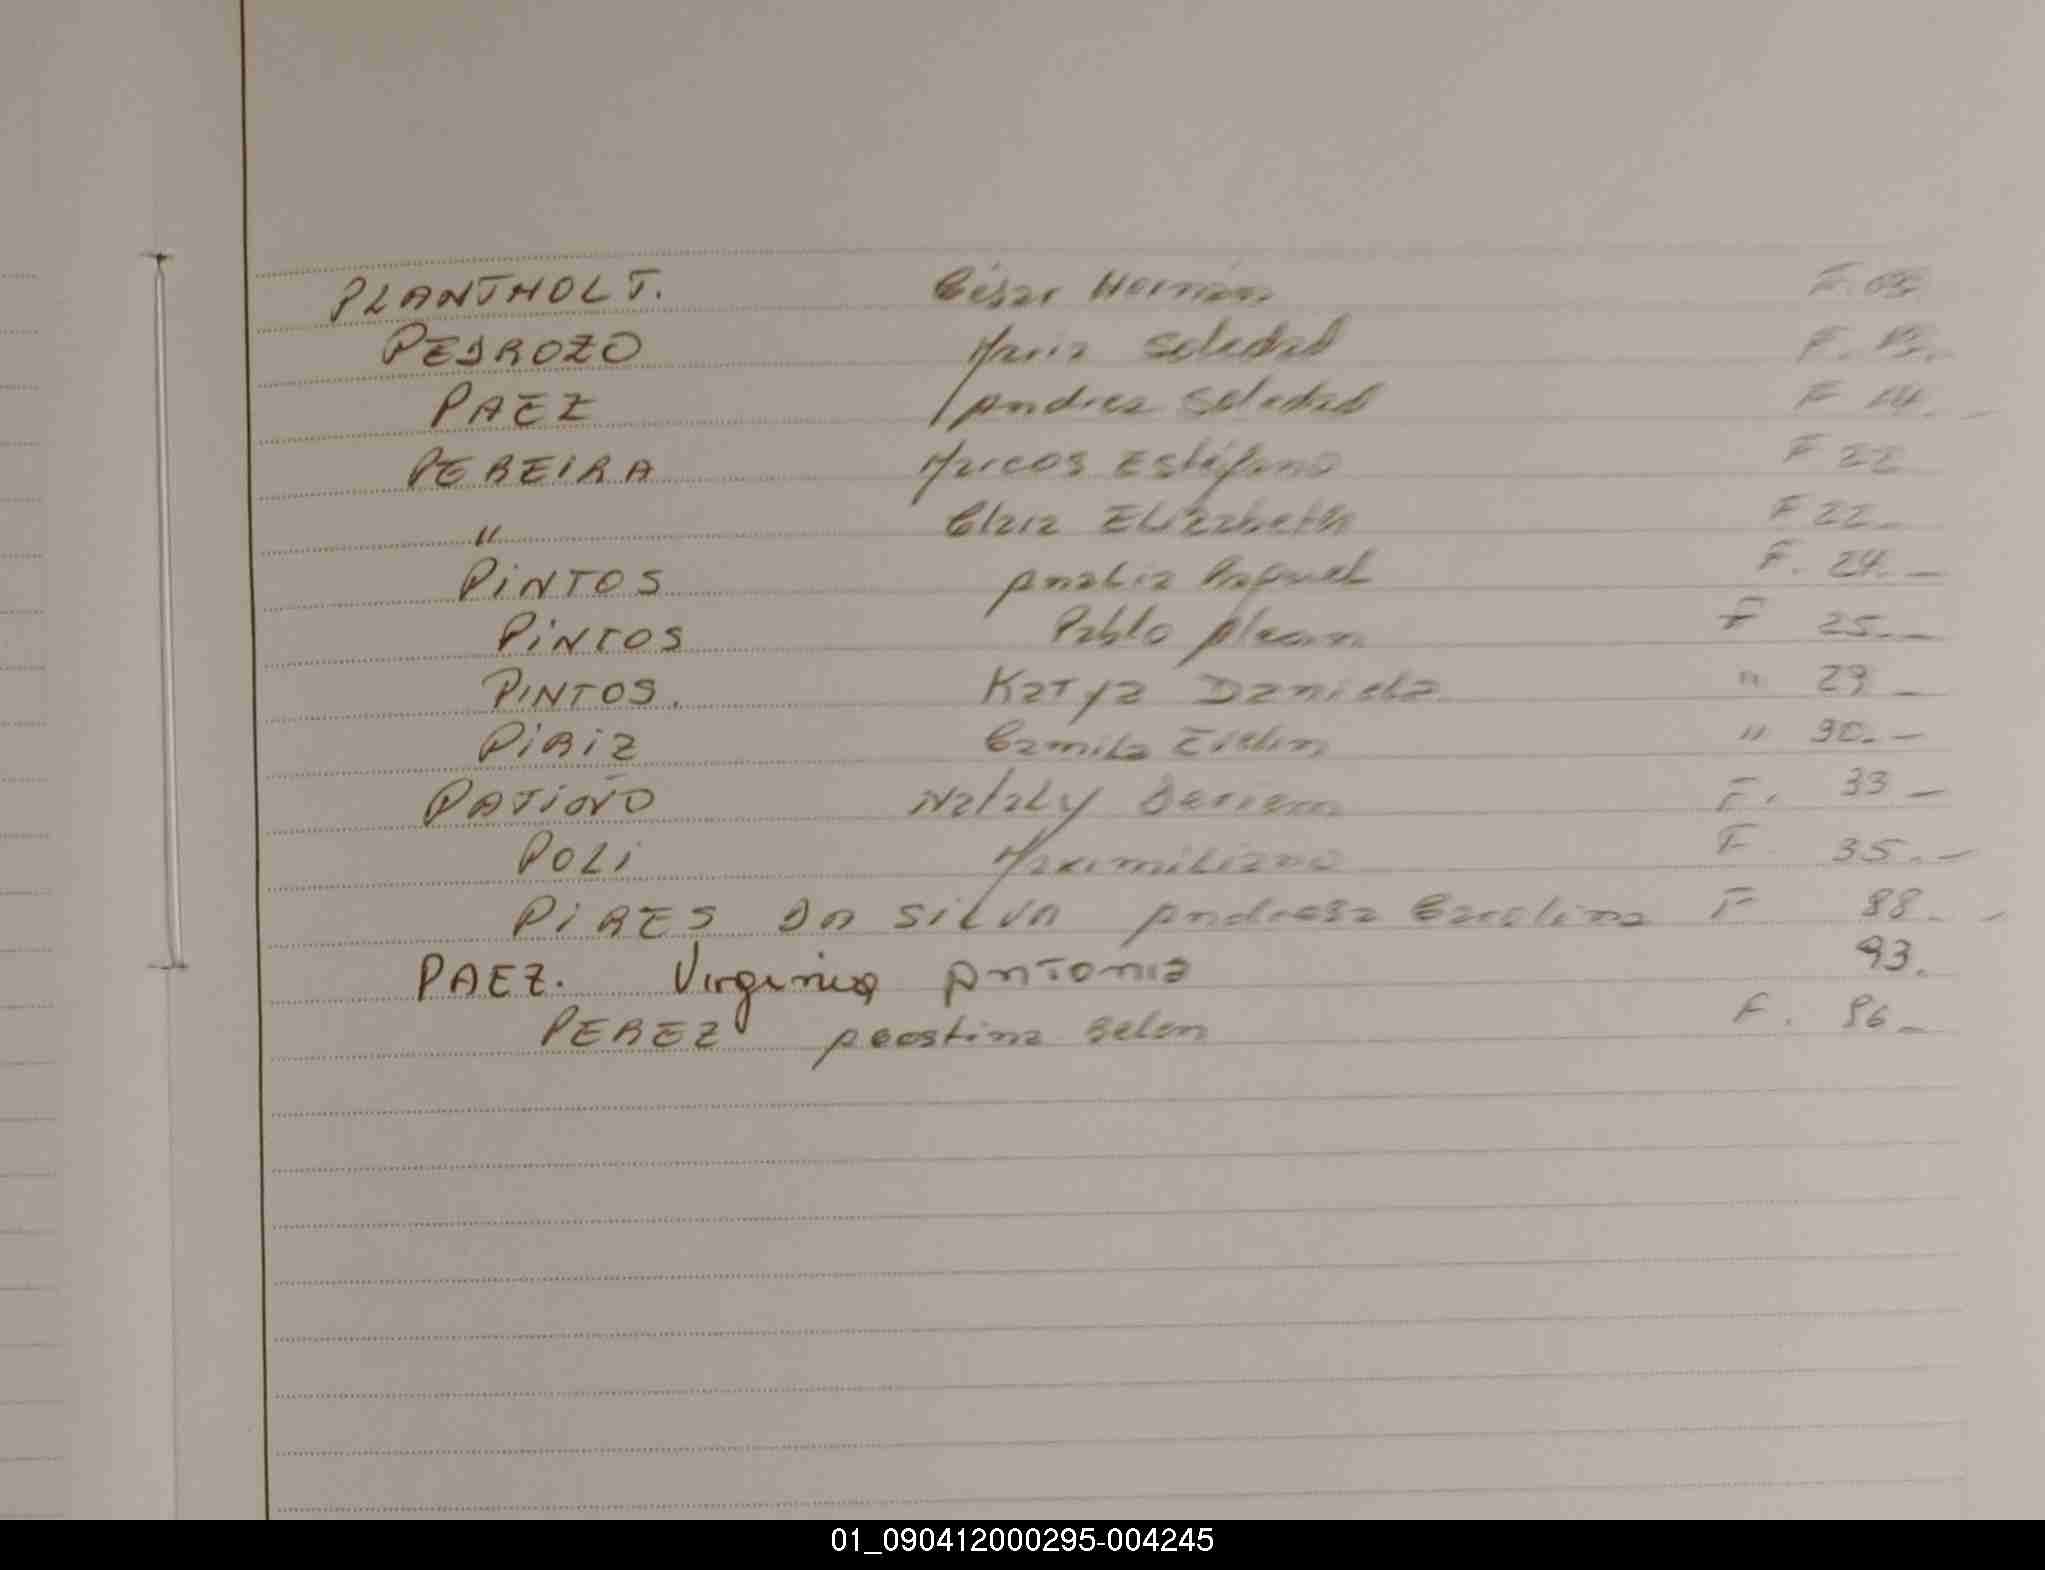 PLANTHOLT. César Hernán F. 09
PEDROZO Maria Soledad F. 13.
PAEZ Andrea Soledad F 14.
PEREIRA Marcos Estéfano F 22
" Clara Elizabeth F 22.
PiNTOS Analia Raquel F. 24.
PiNTOS Pablo F 25.
PINTOS. Katya Daniela " 29
PiRiZ Camila Evelin " 30.
PATiÑO Nataly F. 33
POLi Maximiliano F. 35.
PiRES DA SiLVA Andresa Carolina F 88.
PAEZ. Virginia Antonia 93.
PEREZ Agostina Belen F. 86
01_090412000295-004245